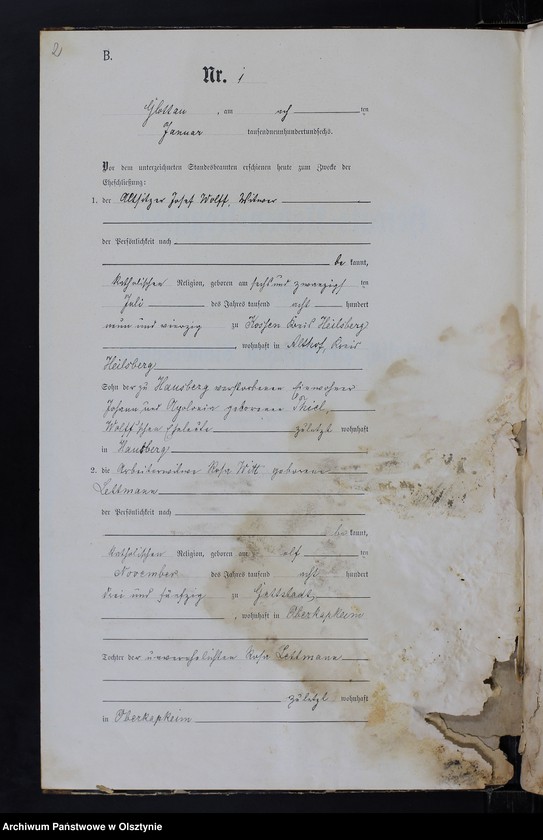 2
B.
Nr. 1
Glottau, am acht ten
Januar tausendneunhundertundsechs.
Vor dem unterzeichneten Standesbeamten erschienen heute zum Zwecke der
Eheschließung:
1. der Altsitzer Josef Wolff, Witwer
der Persönlichkeit nach
be kannt,
katholischen Religion, geboren am sechs und zwanzigsten
Juli des Jahres tausend acht hundert
neun und vierzig zu Kossen Kreis Heilsberg
, wohnhaft in Althof, Kreis
Heilsberg
Sohn der zu Hausberg verstorbenen Einwohner
Johann und geborenen Thiel,
Wolff'schen Eheleute zuletzt wohnhaft
in Hausberg
2. die Arbeiterwitwe Rosa Witt geborene
Lettmann
der Persönlichkeit nach
be kannt,
katholischen Religion, geboren am elf ten
November des Jahres tausend acht hundert
drei und fünfzig zu
, wohnhaft in Oberkapkeim
Tochter der unverehelichten Rosa Lettmann
zuletzt wohnhaft
in Oberkapkeim
Archiwum Państwowe w Olsztynie